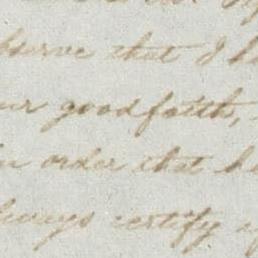 observe that I h
our good faith,
in order that h
always certify